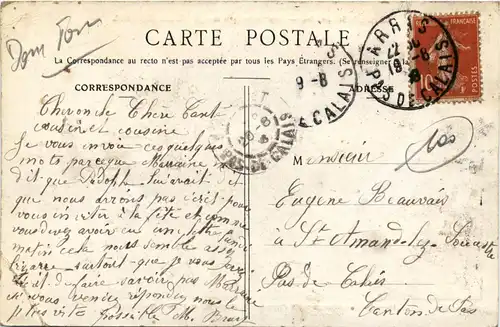 Dom Tom
CARTE POSTALE
La Correspondance au recto n'est pas acceptée par tous les Pays Étrangers. (Se renseigner
CORRESPONDANCE
ADRESSE
ARRAS
PAS DE CALAIS
9-8
E CALAIS
28-8
PAS-DE-CALAIS
10
100
Chere Tante
cousin et cousine
Je vous envoie ces quelques
mots parceque Marraine m
dit que avait dit
que nous avons pas écrit pour
vous inviter à la fête et comme
vous devez avoir eu une lettre
matin cela nous semble assez
bizarre surtout que vous
dit de faire savoir pas
si vous venez répondez nous le
plus vite possible M.
Monsieur
Eugène Beauvais
à St Amand-lez-
Pas de Calais
Canton de Pas